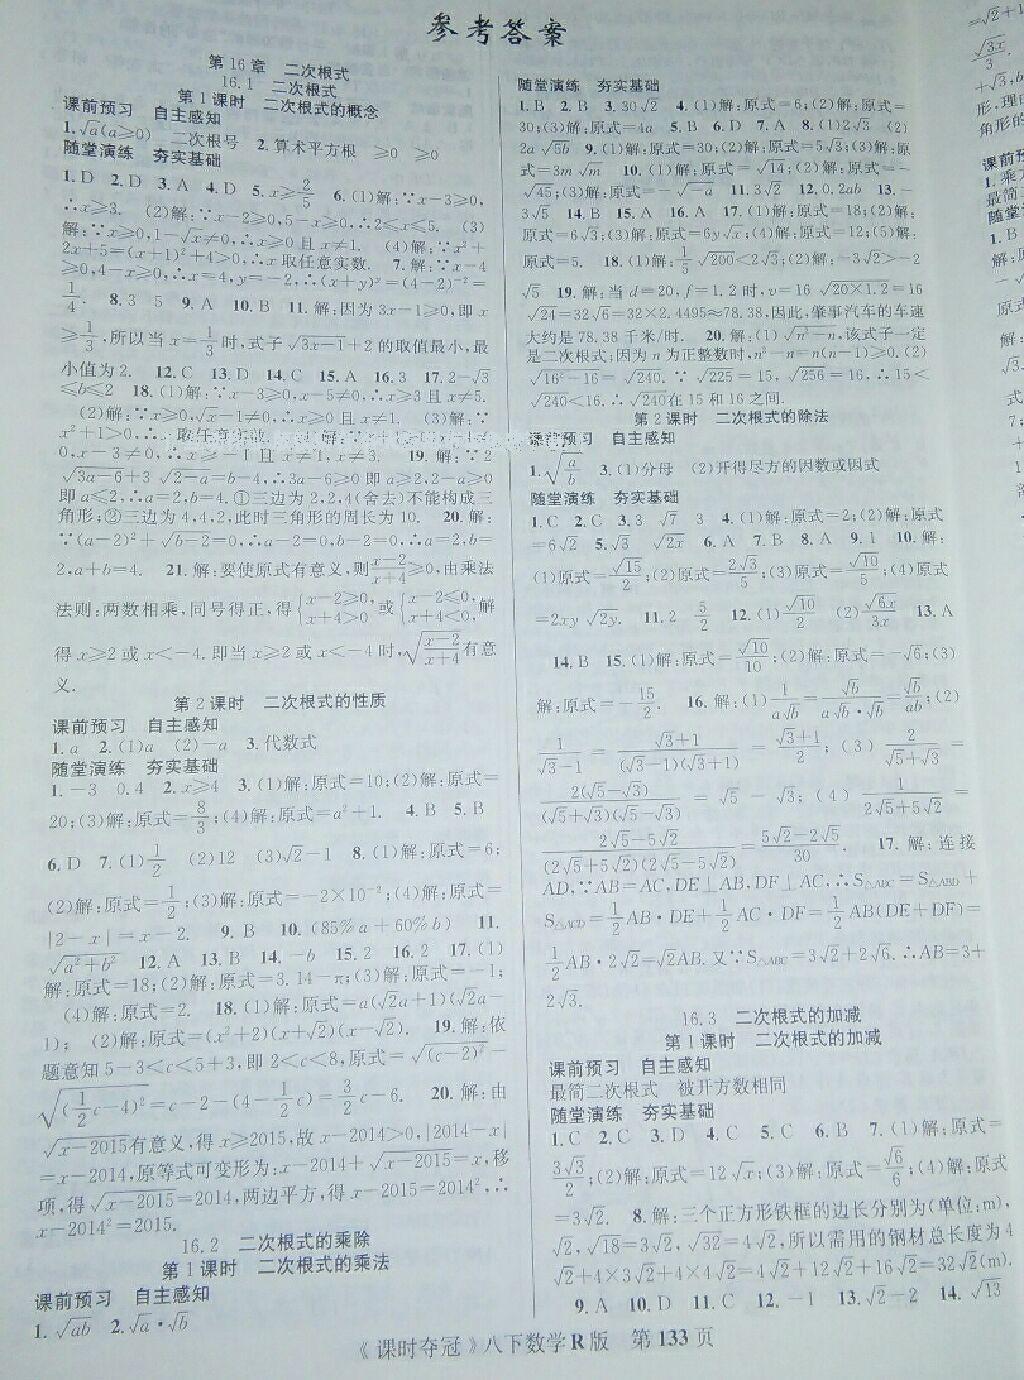 参考答案
第16章 二次根式
16.1 二次根式
第1课时 二次根式的概念
课前预习 自主感知
1.√a(a≥0) 二次根号 2.算术平方根 ≥0 ≥0
随堂演练 夯实基础
1.D 2.D 3.A 4.D 5.x≥2/5 6.(1)解:∵x-3≥0,
∴x≥3. (2)解:∵x-2≥0,5-x≥0,∴2≤x≤5. (3)
解:∵x≥0,1-√x≠0,∴x≥0且x≠1. (4)解:∵x²+
2x+5=(x+1)²+4>0,∴x取任意实数. 7.解:∵x-4
≥0,4-x≥0,∴x=4,y=-2,∴(x+y)⁻²=(4-2)⁻²=
1/4. 8.3 5 9.A 10.B 11.解:因为3x-1≥0,即x
≥1/3,所以当x=1/3时,式子√(3x-1)+2的取值最小,最
小值为2. 12.C 13.D 14.C 15.A 16.3 17.2-√3
≤b≤2 18.(1)解:∵x-3≥0,x-5≠0,∴x≥3且x≠5.
(2)解:∵x≥0,√x-1≠0,∴x≥0且x≠1. (3)解:∵
x²+1>0,∴取任意
0,x-3≠0,∴x≥-1且x≠3. 19.解:∵2
√(3a-6)+3√(2-a)=b-4,∴3a-6≥0即a≥2,2-a≥0
即a≤2,∴a=2,b=4.①三边为2,2,4(舍去)不能构成三
角形;②三边为4,4,2,此时三角形的周长为10. 20.解:
∵(a-2)²+√(b-2)=0,∴a-2=0,b-2=0,∴a=2,b=
2,a+b=4. 21.解:要使原式有意义,则(x-2)/(x+4)≥0,由乘法
法则:两数相乘,同号得正,得{x-2≥0,x+4>0或{x-2≤0,x+4<0,解
得x≥2或x<-4.即当x≥2或x<-4时,√((x-2)/(x+4))有意
义.
第2课时 二次根式的性质
课前预习 自主感知
1.a 2.(1)a (2)-a 3.代数式
随堂演练 夯实基础
1.-3 0.4 2.x≥4 3.(1)解:原式=10;(2)解:原式=
20;(3)解:原式=8/3;(4)解:原式=a²+1. 4.B 5.B
6.D 7.(1)1/2 (2)12 (3)√2-1 8.(1)解:原式=6;
(2)解:原式=1/2;(3)解:原式=-2×10⁻²;(4)解:原式=
|2-x|=x-2. 9.B 10.(85%a+60%b) 11.
√(a²+b²) 12.A 13.B 14.-b 15.2 16.2 17.(1)
解:原式=18;(2)解:原式=3.14-π;(3)解:原式=-1;
(4)解:原式=2. 18.(1)解:原式=a(√2a+1)(√2a-
1); (2)解:原式=(x²+2)(x+√2)(x-√2). 19.解:依
题意知5-3<c<5+3,即2<c<8,原式=√((c-2)²)-
√((1/2c-4)²)=c-2-(4-1/2c)=3/2c-6. 20.解:由
√(x-2015)有意义,得x≥2015,故x-2014>0,|2014-x|
=x-2014,原等式可变形为:x-2014+√(x-2015)=x,移
项,得√(x-2015)=2014,两边平方,得x-2015=2014²,∴
x-2014²=2015.
16.2 二次根式的乘除
第1课时 二次根式的乘法
课前预习 自主感知
1.√(ab) 2.√a·√b
随堂演练 夯实基础
1.B 2.B 3.30√2 4.(1)解:原式=6;(2)解:原式=
30;(3)解:原式=4a 5.B 6.D 7.A 8.(1)2√3 (2)
2a√(5b) 9.(1)解:原式=30;(2)解:原式=5√3;(3)解:原
式=3m√m 10.(1)解:原式=√14;(2)解:原式=-
√45;(3)解:原式=-√(-a) 11.3√2 12.0.2ab 13.-
3√5 14.B 15.A 16.A 17.(1)解:原式=18;(2)解:
原式=6√3;(3)解:原式=6y√x;(4)解:原式=12;(5)解:
原式=5. 18.(1)解:1/5√200<2√3;(2)解:-3√2>-2
√5 19.解:当d=20,f=1.2时,v=16√(20×1.2)=16
√24=32√6=32×2.4495≈78.38,因此,肇事汽车的车速
大约是78.38千米/时. 20.解:(1)√(n²-n),该式子一定
是二次根式;因为n为正整数时,n²-n=n(n-1)≥0.(2)
√(16²-16)=√240.∵√225=15,√256=16,∴15<
√240<16.∴√240在15和16之间.
第2课时 二次根式的除法
课前预习 自主感知
1.√(a/b) 3.(1)分母 (2)开得尽方的因数或因式
随堂演练 夯实基础
1.C 2.C 3.3 √7 3 4.(1)解:原式=2;(2)解:原式
=6√2 5.√3 √(2x) 6.A 7.B 8.A 9.1 10.解:
(1)原式=√15/2;(2)原式=2√3/5;(3)原式=√10/5;(4)原式
=2xy√(2y). 11.2 5/2 12.(1)√10/2 (2)√(6x)/3x 13.A
14.B 15.(1)解:原式=√10/10;(2)解:原式=-√6;(3)
解:原式=-15/2. 16.解:(1)1/(a√b)=√b/(a√b·√b)=√b/ab;(2)
1/(√3-1)=(√3+1)/((√3-1)(√3+1))=(√3+1)/2;(3)2/(√5+√3)=
2(√5-√3)/((√5+√3)(√5-√3))=√5-√3;(4)1/(2√5+5√2)=
(2√5-5√2)/((2√5+5√2)(2√5-5√2))=(5√2-2√5)/30. 17.解:连接
AD,∵AB=AC,DE⊥AB,DF⊥AC,∴S△ABC=S△ABD+
S△ACD=1/2AB·DE+1/2AC·DF=1/2AB(DE+DF)=
1/2AB·2√2=√2AB.又∵S△ABC=3√2+2√6,∴AB=3+
2√3.
16.3 二次根式的加减
第1课时 二次根式的加减
课前预习 自主感知
最简二次根式 被开方数相同
随堂演练 夯实基础
1.C 2.C 3.D 4.C 5.C 6.B 7.(1)解:原式=
3√3/2;(2)解:原式=12√x;(3)解:原式=√6/6;(4)解:原式
=3√2. 8.解:三个正方形铁框的边长分别为(单位:m),
√2,√18=3√2,√32=4√2,所以需用的钢材总长度为4
√2+4×3√2+4×4√2=4√2+12√2+16√2=32√2(m).
9.A 10.D 11.C 12.-1 13.√2-2 14.√13
《课时夺冠》八下数学R版 第133页